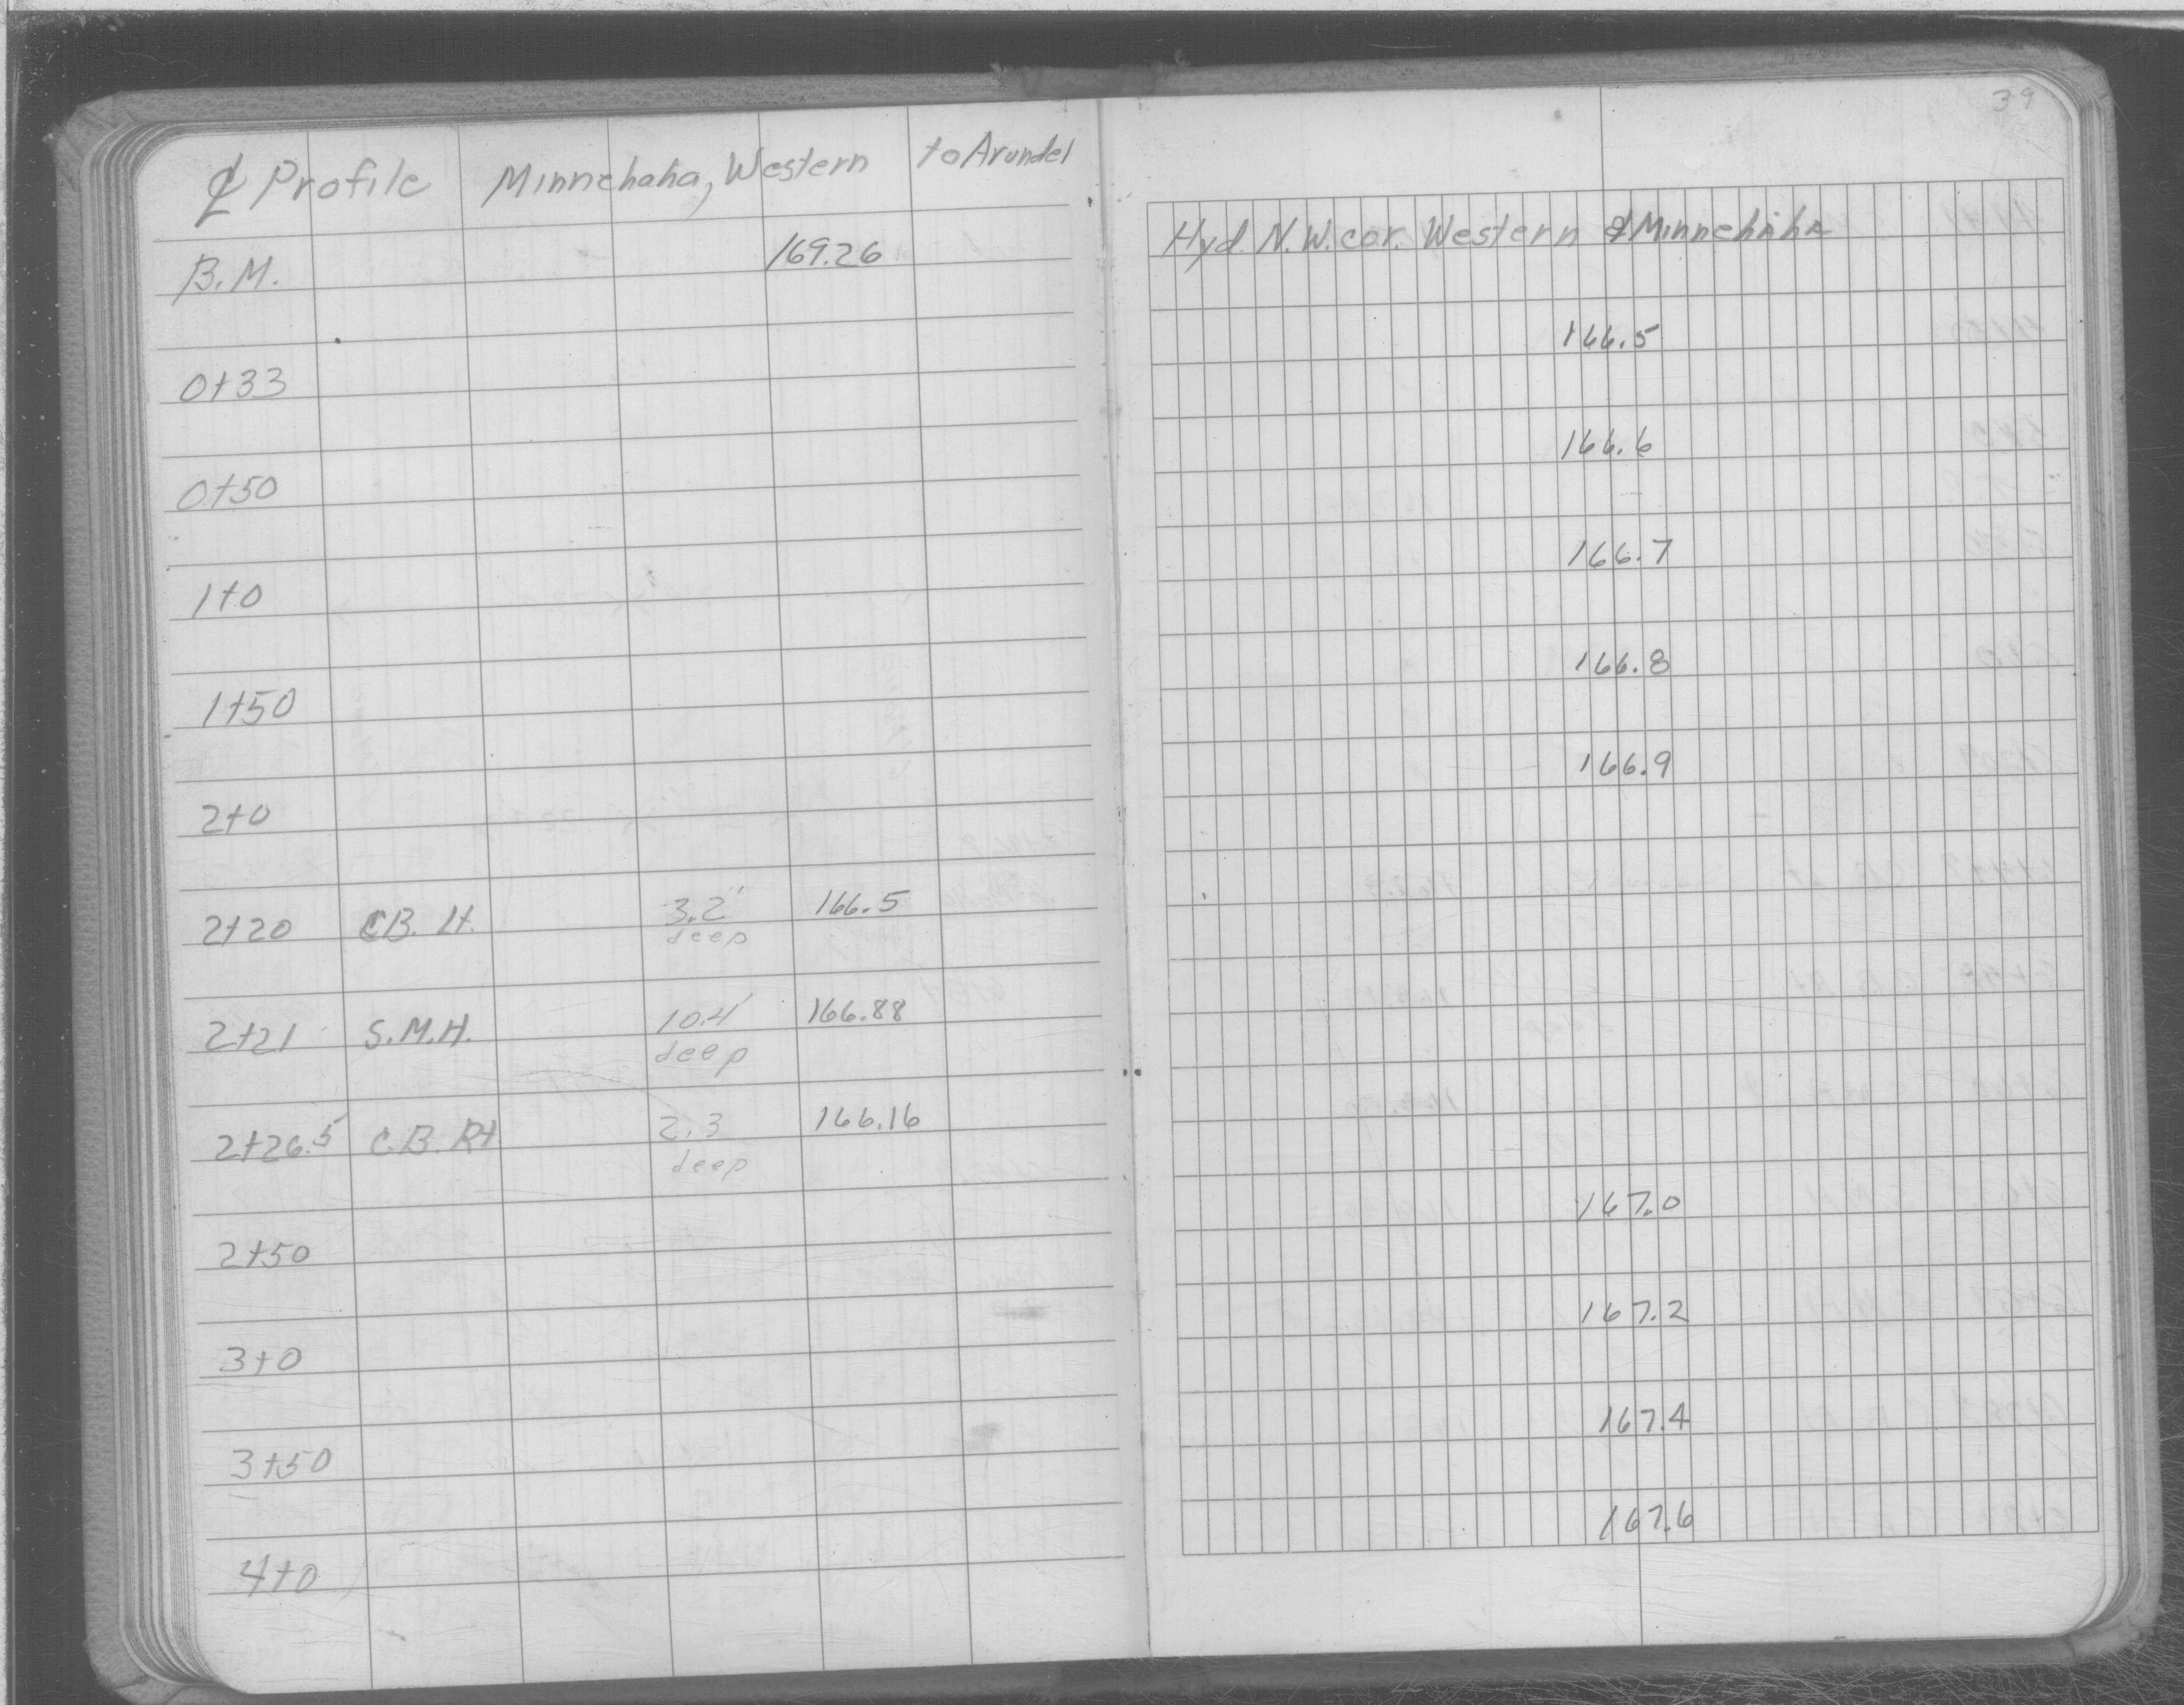 39
℄ Profile Minnehaha, Western to Arundel
B.M. 169.26 Hyd. N.W. cor. Western & Minnehaha
0+33 166.5
0+50 166.6
1+0 166.7
1+50 166.8
2+0 166.9
2+20 C.B. Lt. 3.2' deep 166.5
2+21 S.M.H. 10.4' deep 166.88
2+26.5 C.B. Rt 2.3 deep 166.16
2+50 167.0
3+0 167.2
3+50 167.4
4+0 167.6